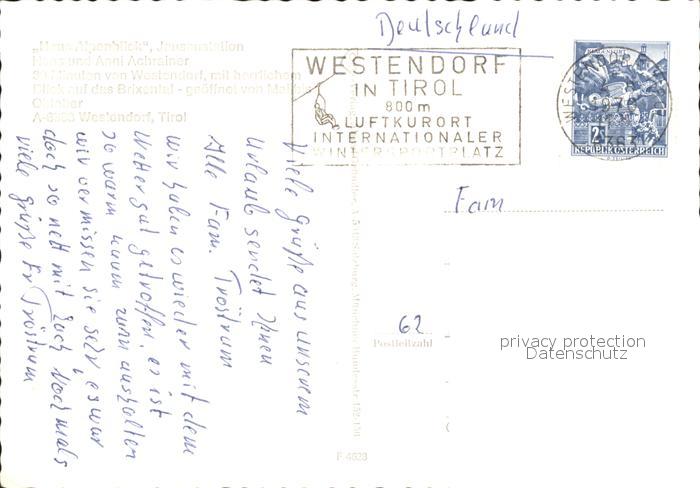 Deutschland
„Haus Alpenblick“, Jausenstation
Hans und Anni Achrainer
30 Minuten von Westendorf, mit herrlichem
Blick auf das Brixental - geöffnet von Mai bis
Oktober
A-6363 Westendorf, Tirol
WESTENDORF
IN TIROL
800m
LUFTKURORT
INTERNATIONALER
WINTERSPORTPLATZ
WESTENDORF
KLAGENFURT
2S
REPUBLIK ÖSTERREICH
Viele Grüße aus unserem
Urlaub sendet Ihnen
Alle Fam. Tröstrum
wir haben es wieder mit dem
Wetter gut getroffen, es ist
so warm kaum zum aushalten
wir vermissen sie sehr, es war
doch so nett mit Euch Nochmals
viele Grüße Fr Tröstrum
Fam
62
Postleitzahl
privacy protection
Datenschutz
F 4628